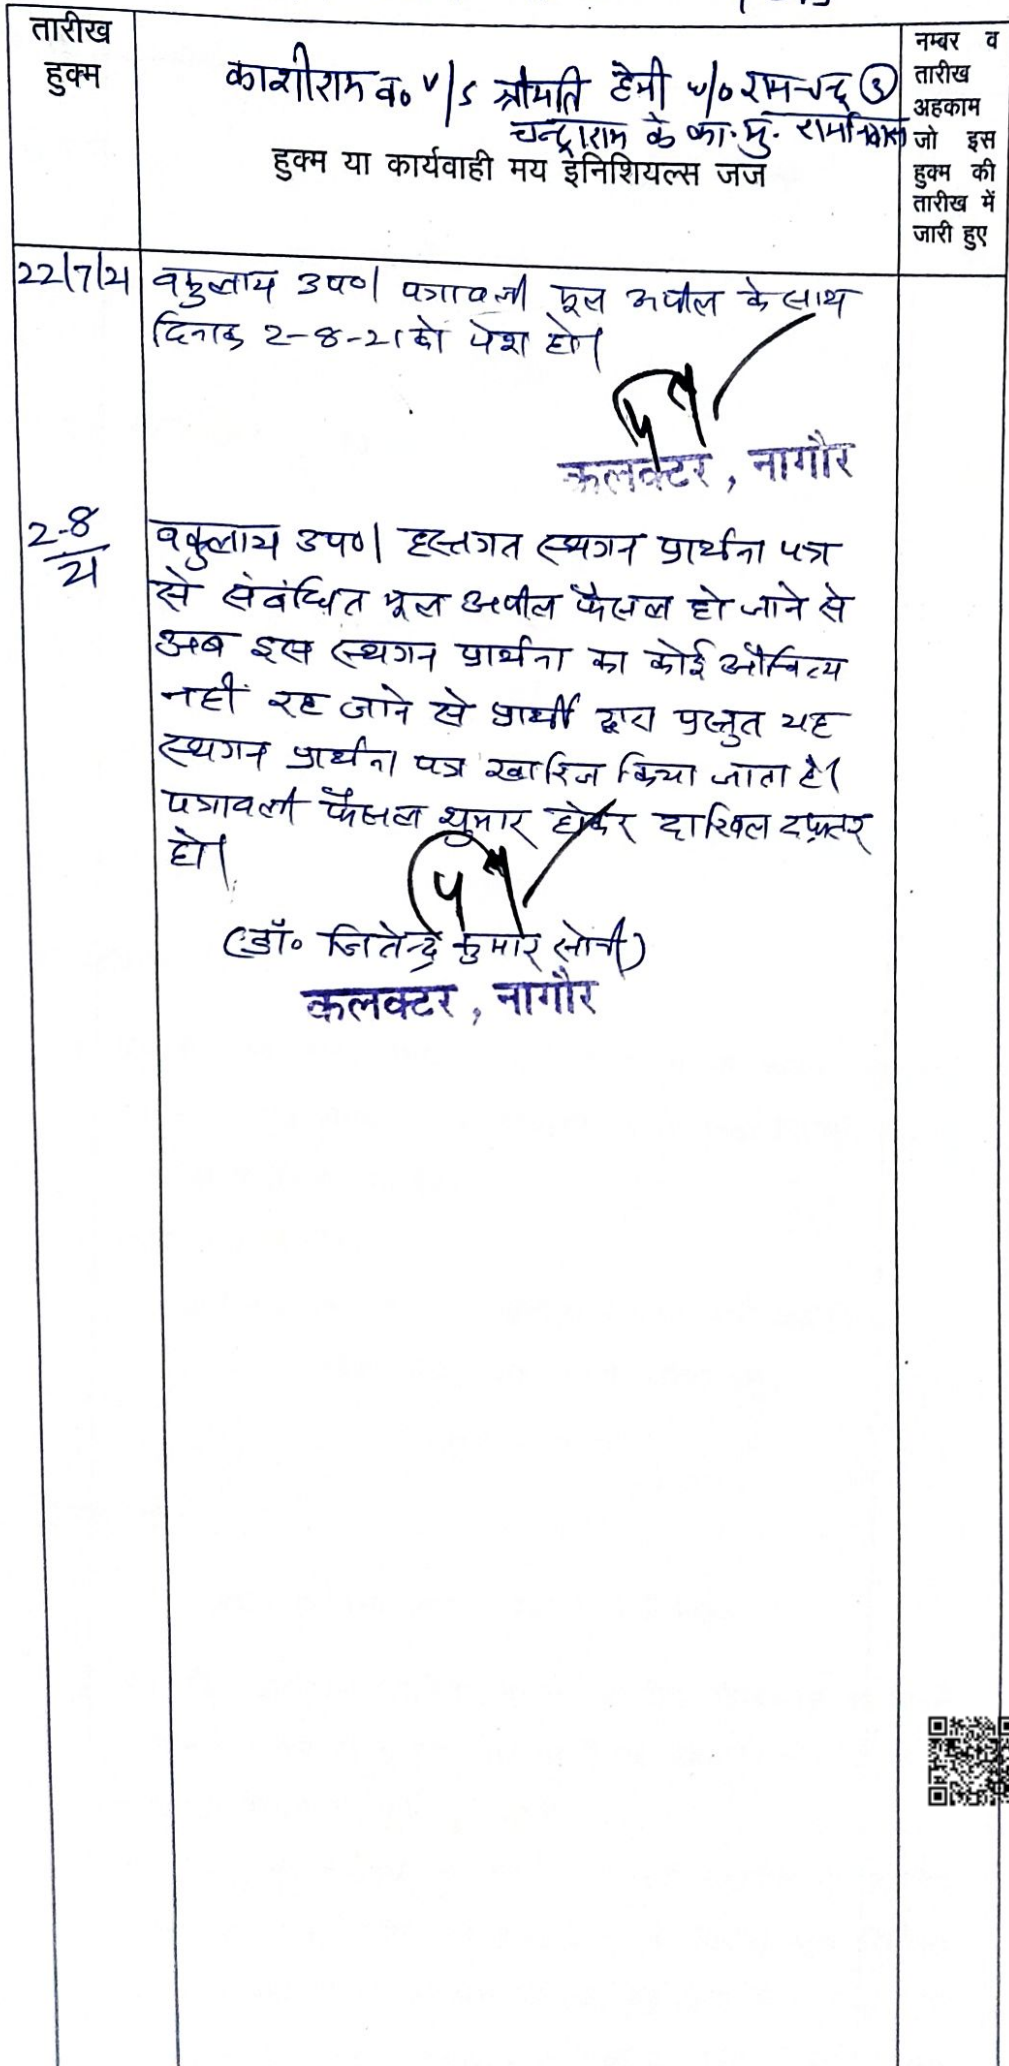 तारीख
हुक्म
काशीराम व० v/s श्रीमति हेमी w/o रामचन्द्र ③
चन्द्राराम के का.मु. रामनिवास
हुक्म या कार्यवाही मय इनिशियल्स जज
नम्बर व
तारीख
अहकाम
जो इस
हुक्म की
तारीख में
जारी हुए
22/7/21 वकुलाय उप०। पत्रावली मूल अपील के साथ
दिनांक 2-8-21 को पेश हो।
कलक्टर, नागौर
2-8
21
वकुलाय उप०। हस्तगत स्थगन प्रार्थना पत्र
से संबंधित मूल अपील फैसल हो जाने से
अब इस स्थगन प्रार्थना का कोई औचित्य
नहीं रह जाने से प्रार्थी द्वारा प्रस्तुत यह
स्थगन प्रार्थना पत्र खारिज किया जाता है।
पत्रावली फैसल शुमार होकर दाखिल दफ्तर
हो।
(डॉ० जितेन्द्र कुमार सोनी)
कलक्टर, नागौर